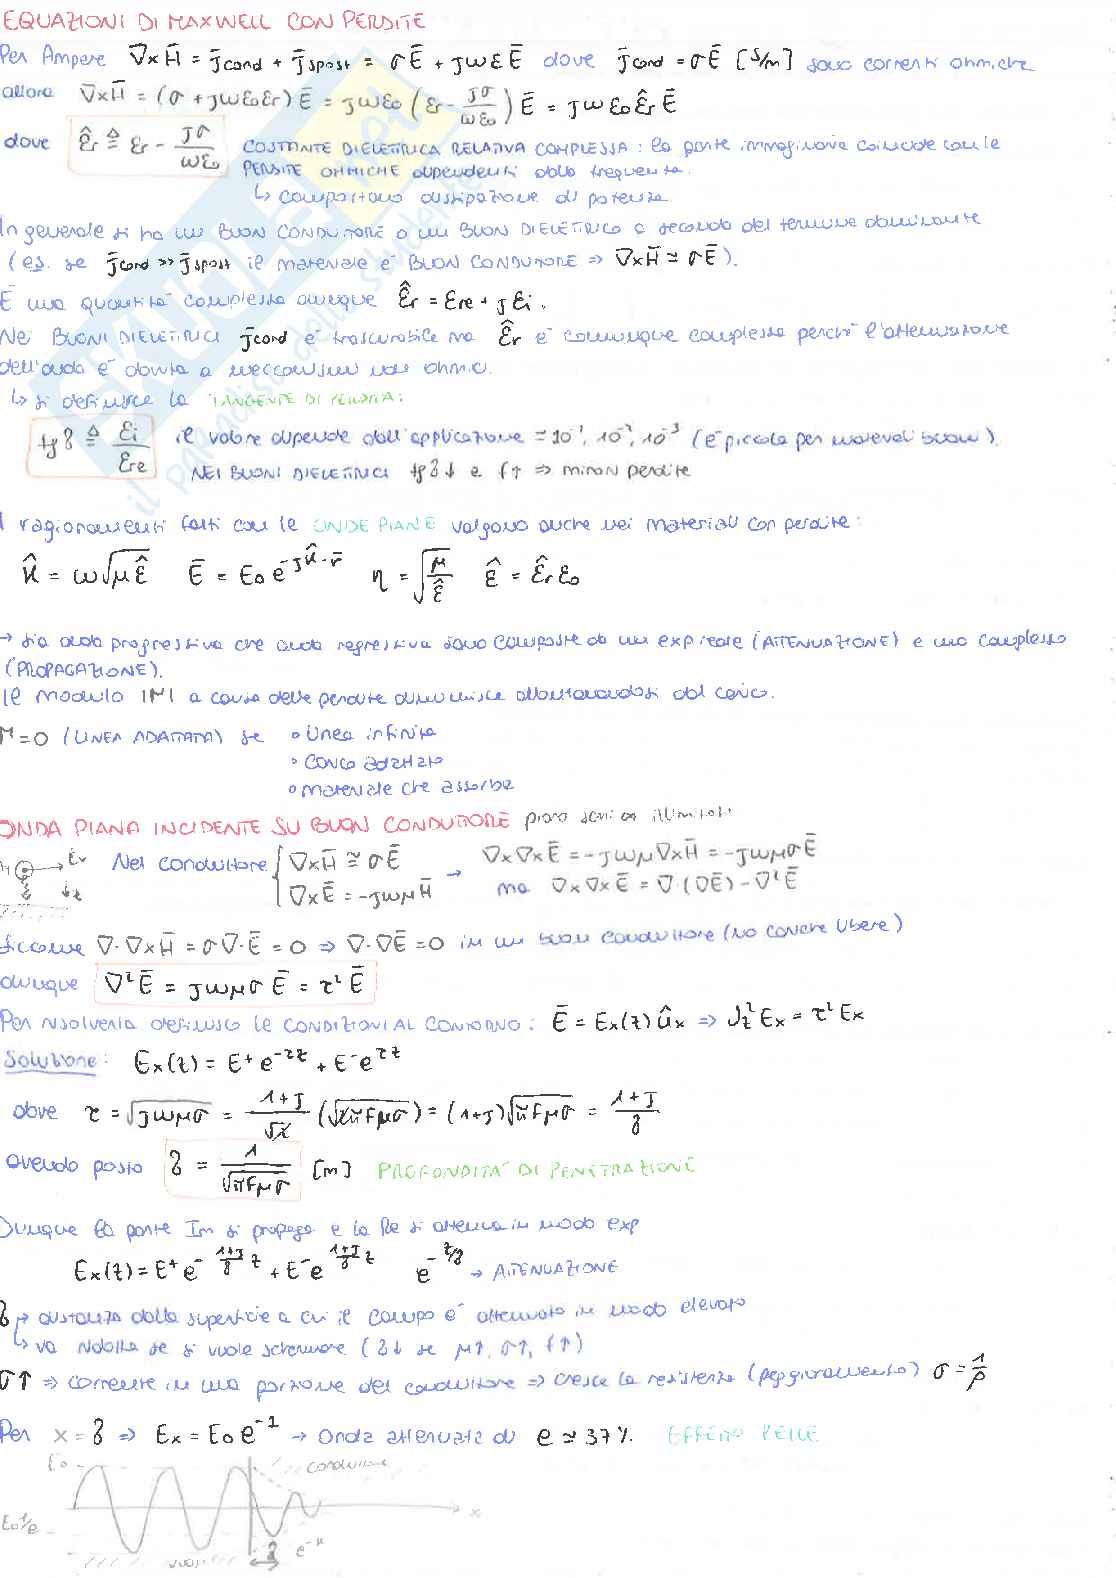 EQUAZIONI DI MAXWELL CON PERDITE
Per Ampere ∇×H̄ = J̄cond + J̄spost = σĒ + jωεĒ dove J̄cond = σĒ [S/m] sono correnti ohmiche
allora ∇×H̄ = (σ + jωε₀εr)Ē = jωε₀(εr - jσ/ωε₀)Ē = jωε₀ε̂rĒ
dove ε̂r ≜ εr - jσ/ωε₀ COSTANTE DIELETTRICA RELATIVA COMPLESSA: la parte immaginaria coincide con le
PERDITE OHMICHE dipendenti dalla frequenza.
↳ comportano dissipazione di potenza
In generale si ha un BUON CONDUTTORE o un BUON DIELETTRICO a seconda del termine dominante
(es. se J̄cond >> J̄spost il materiale è BUON CONDUTTORE ⇒ ∇×H̄ ≃ σĒ).
È una quantità complessa dunque ε̂r = εre + jεi.
Nei BUONI DIELETTRICI J̄cond è trascurabile ma ε̂r è comunque complessa perché l'attenuazione
dell'onda è dovuta a meccanismi non ohmici.
↳ si definisce la TANGENTE DI PERDITA:
tgδ ≜ εi/εre il valore dipende dall'applicazione = 10⁻¹, 10⁻², 10⁻³ (è piccola per materiali buoni).
NEI BUONI DIELETTRICI tgδ↓ e f↑ ⇒ minori perdite
I ragionamenti fatti con le ONDE PIANE valgono anche nei materiali con perdite:
k̂ = ω√με̂ Ē = E₀e^(-jk̂·r̄) η = √(μ/ε̂) ε̂ = ε̂rε₀
→ sia onda progressiva che onda regressiva sono composte da un exp reale (ATTENUAZIONE) e uno complesso
(PROPAGAZIONE).
Il modulo |Γ| a causa delle perdite diminuisce allontanandosi dal carico.
Γ=0 (LINEA ADATTATA) se • Linea infinita
• Carico adattato
• materiale che assorbe
ONDA PIANA INCIDENTE SU BUON CONDUTTORE piano semi ∞ illimitato
Ex Nel conduttore { ∇×H̄ ≅ σĒ → ∇×∇×Ē = -jωμ∇×H̄ = -jωμσĒ
z ∇×Ē = -jωμH̄ ma ∇×∇×Ē = ∇·(∇Ē) - ∇²Ē
Siccome ∇·∇×H̄ = σ∇·Ē = 0 ⇒ ∇·∇Ē = 0 in un buon conduttore (no cariche libere)
dunque ∇²Ē = jωμσĒ = τ²Ē
Per risolverla definisco le CONDIZIONI AL CONTORNO: Ē = Ex(z)ûx ⇒ ∂z²Ex = τ²Ex
Soluzione: Ex(z) = E⁺e^(-τz) + E⁻e^(τz)
dove τ = √jωμσ = (1+j)/√2 (√2πfμσ) = (1+j)√πfμσ = (1+j)/δ
avendo posto δ = 1/√πfμσ [m] PROFONDITÀ DI PENETRAZIONE
Dunque la parte Im si propaga e la Re si attenua in modo exp
Ex(z) = E⁺e^(-(1+j)/δ z) + E⁻e^((1+j)/δ z) e^(-z/δ) → ATTENUAZIONE
δ → distanza dalla superficie a cui il campo è attenuato in modo elevato
↳ va ridotta se si vuole schermare (δ↓ se μ↑, σ↑, f↑)
σ↑ ⇒ corrente in una porzione del conduttore ⇒ cresce la resistenza (peggioramento) σ = 1/ρ
Per x = δ ⇒ Ex = E₀e⁻¹ → Onda attenuata di e ≃ 37%. EFFETTO PELLE
E₀ conduttore
x
E₀1/e
vuoto δ e^(-x)
SKUOLA.net
il paradiso dello studente